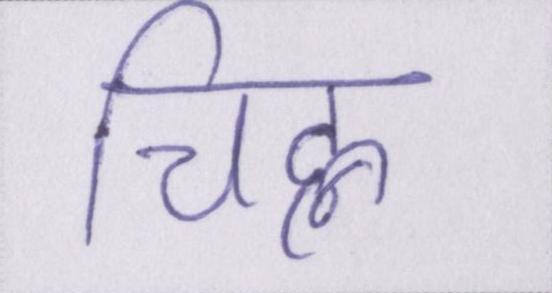 चिह्न